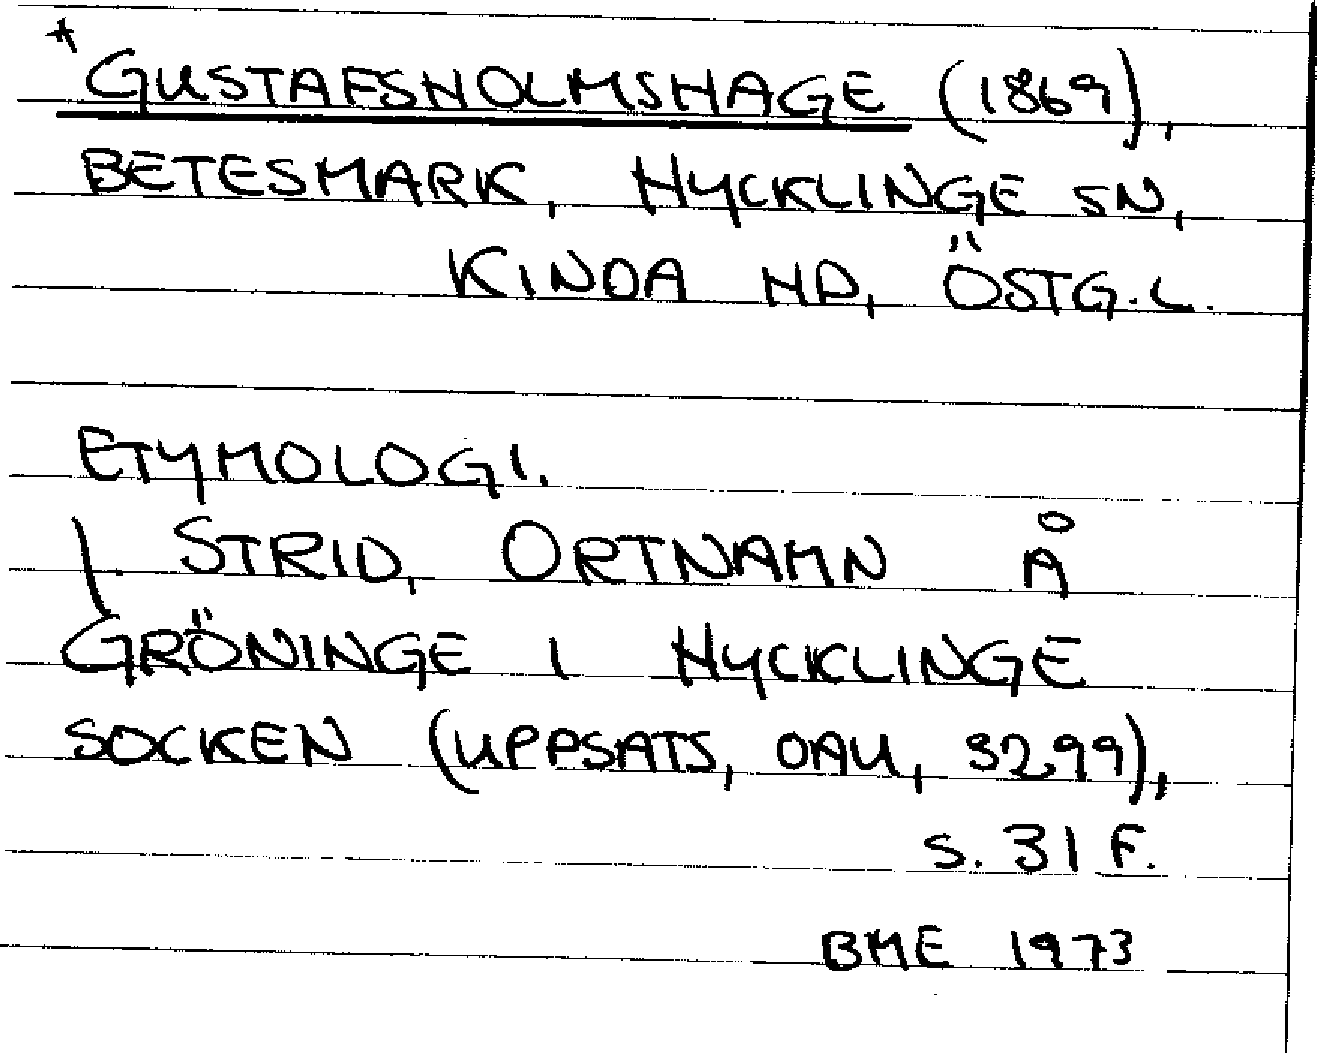 +GUSTAFSHOLMSHAGE (1869),
BETESMARK, HYCKLINGE SN,
KINDA HD, ÖSTG.L.
ETYMOLOGI.
J STRID, ORTNAMN Å
GRÖNINGE I HYCKLINGE
SOCKEN (UPPSATS, OAU, 3299),
S. 31 F.
BME 1973